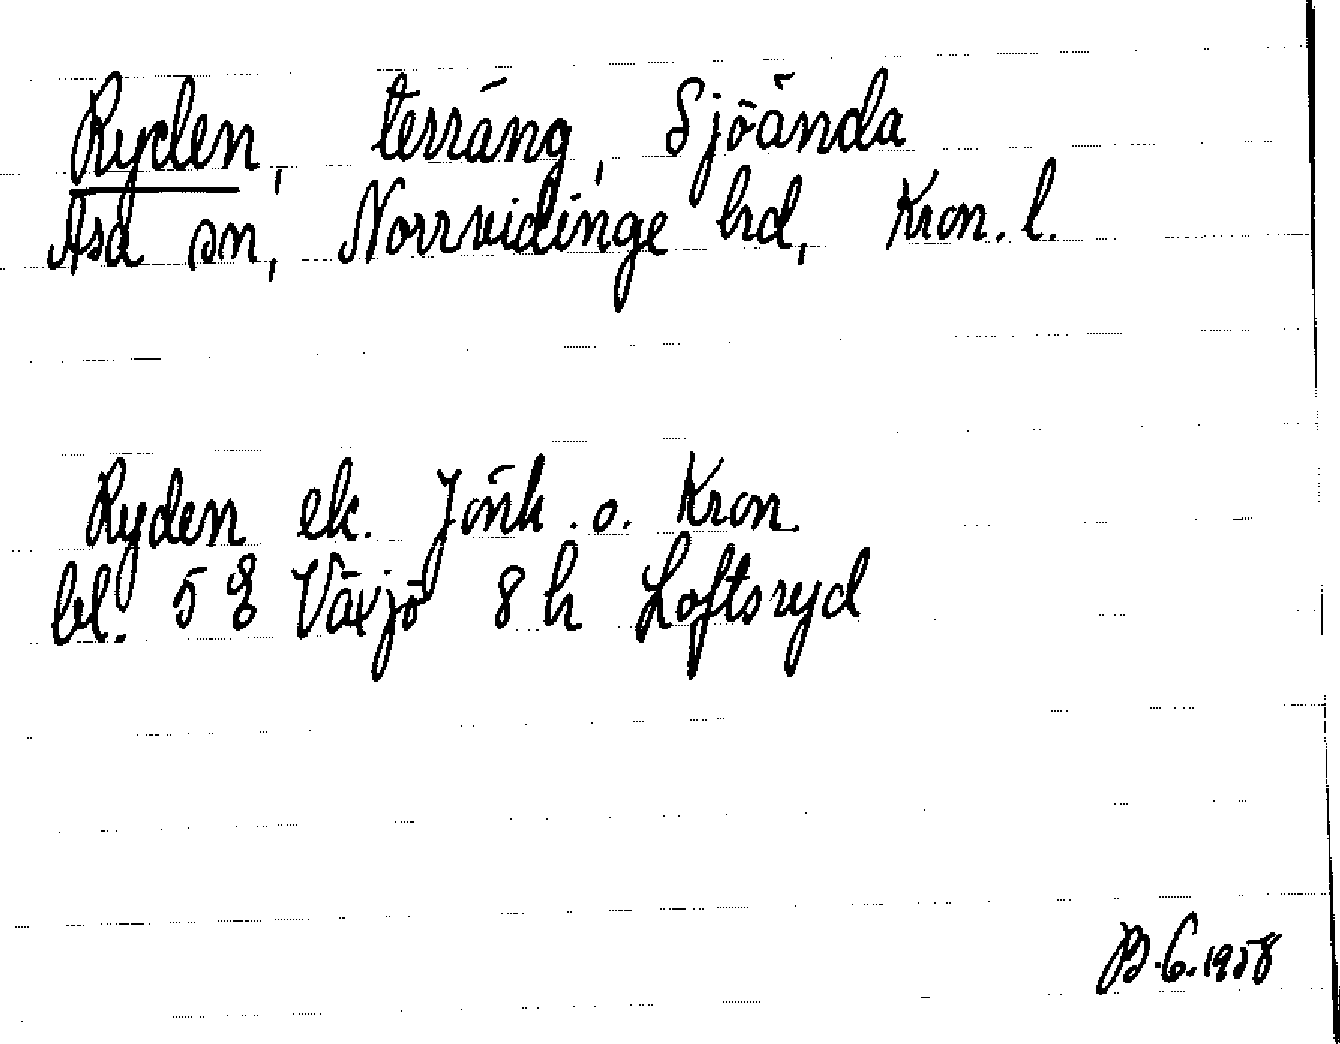 Ryden, terräng, Sjöända
Asa sn, Norrvidinge hd, Kron. l.
Ryden ek. Jönk. o. Kron.
bl. 58 Växjö 8 h Loftsryd
B.G. 1958